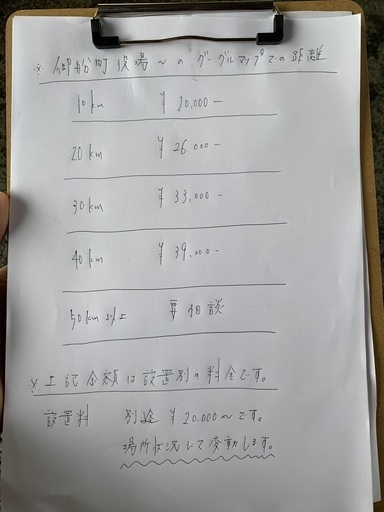 ※ 御船町役場〜のグーグルマップでの距離
10km ¥20,000-
20km ¥26.000-
30km ¥33,000-
40km ¥39,000-
50km以上 要相談
※上記金額は設置別の料金です。
設置料 別途 ¥20.000〜です。
場所状況にて変動します。